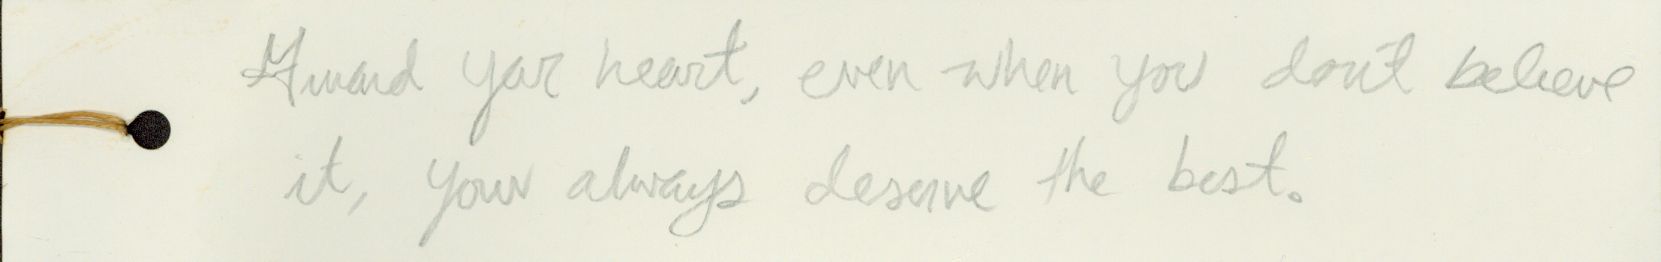 Guard your heart, even when you don't believe
it, you always deserve the best.